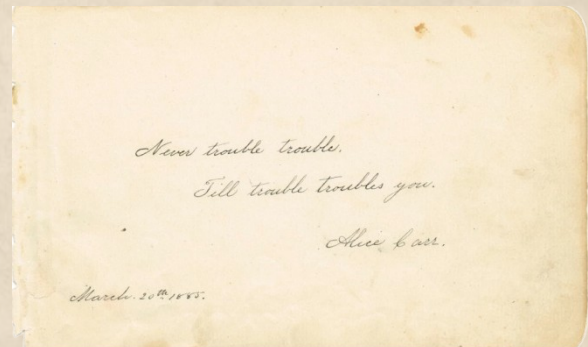 Never trouble trouble.
Till trouble troubles you.
Alice Carr.
March. 20th 1885.